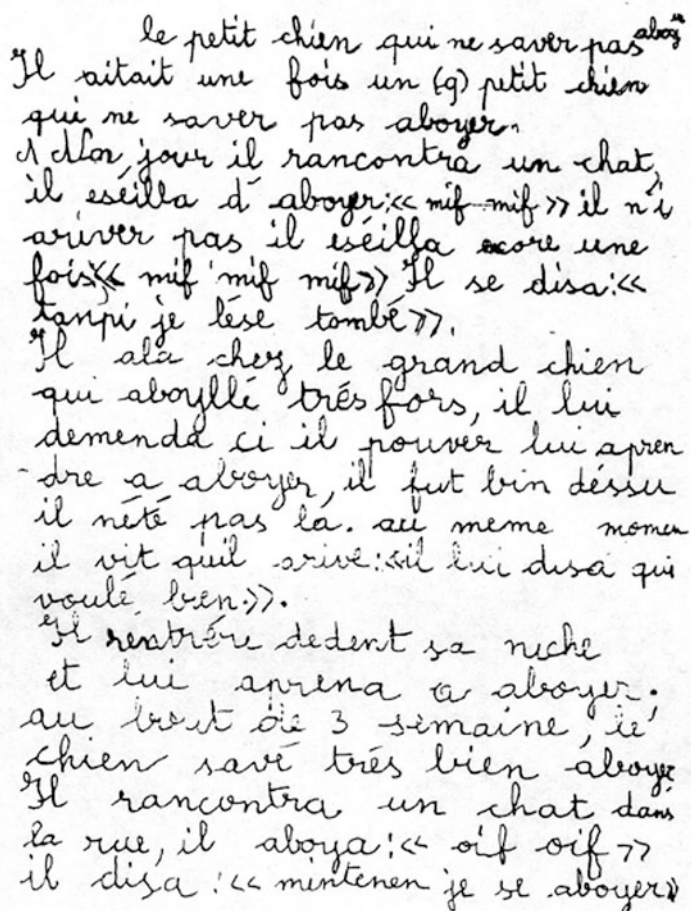 le petit chien qui ne saver pas aboyer
Il aitait une fois un (q) petit chien
qui ne saver pas aboyer.
jour il rancontra un chat,
il eséilla d'aboyer:« mif mif » il n'i
ariver pas il eséilla encore une
fois« mif mif mif» Il se disa:«
tanpi je lése tombé».
Il ala chez le grand chien
qui aboyllé trés fors, il lui
demenda ci il pouver lui apren
dre a aboyer, il fut bin déssu
il nété pas la. au meme momen
il vit quil arive:«il lui disa qui
voulé bien.».
Il rentrére dedent sa niche
et lui aprena a aboyer.
au bout de 3 semaine, le
chien savé trés bien aboyer
Il rancontra un chat dans
la rue, il aboya:« oif oif »
il disa:« mintenen je se aboyer»